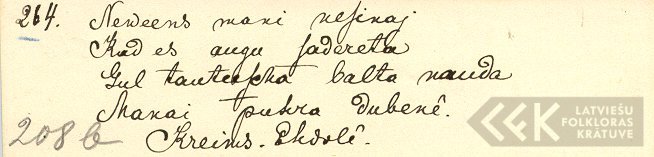 264. Neweens mani nesinaj
Kad es augu sadereta
Gul tauteescha balta nauda
Manai puhra dubenê.
208b Kreims. Ehdolê.
LATVIEŠU
FOLKLORAS
KRĀTUVE